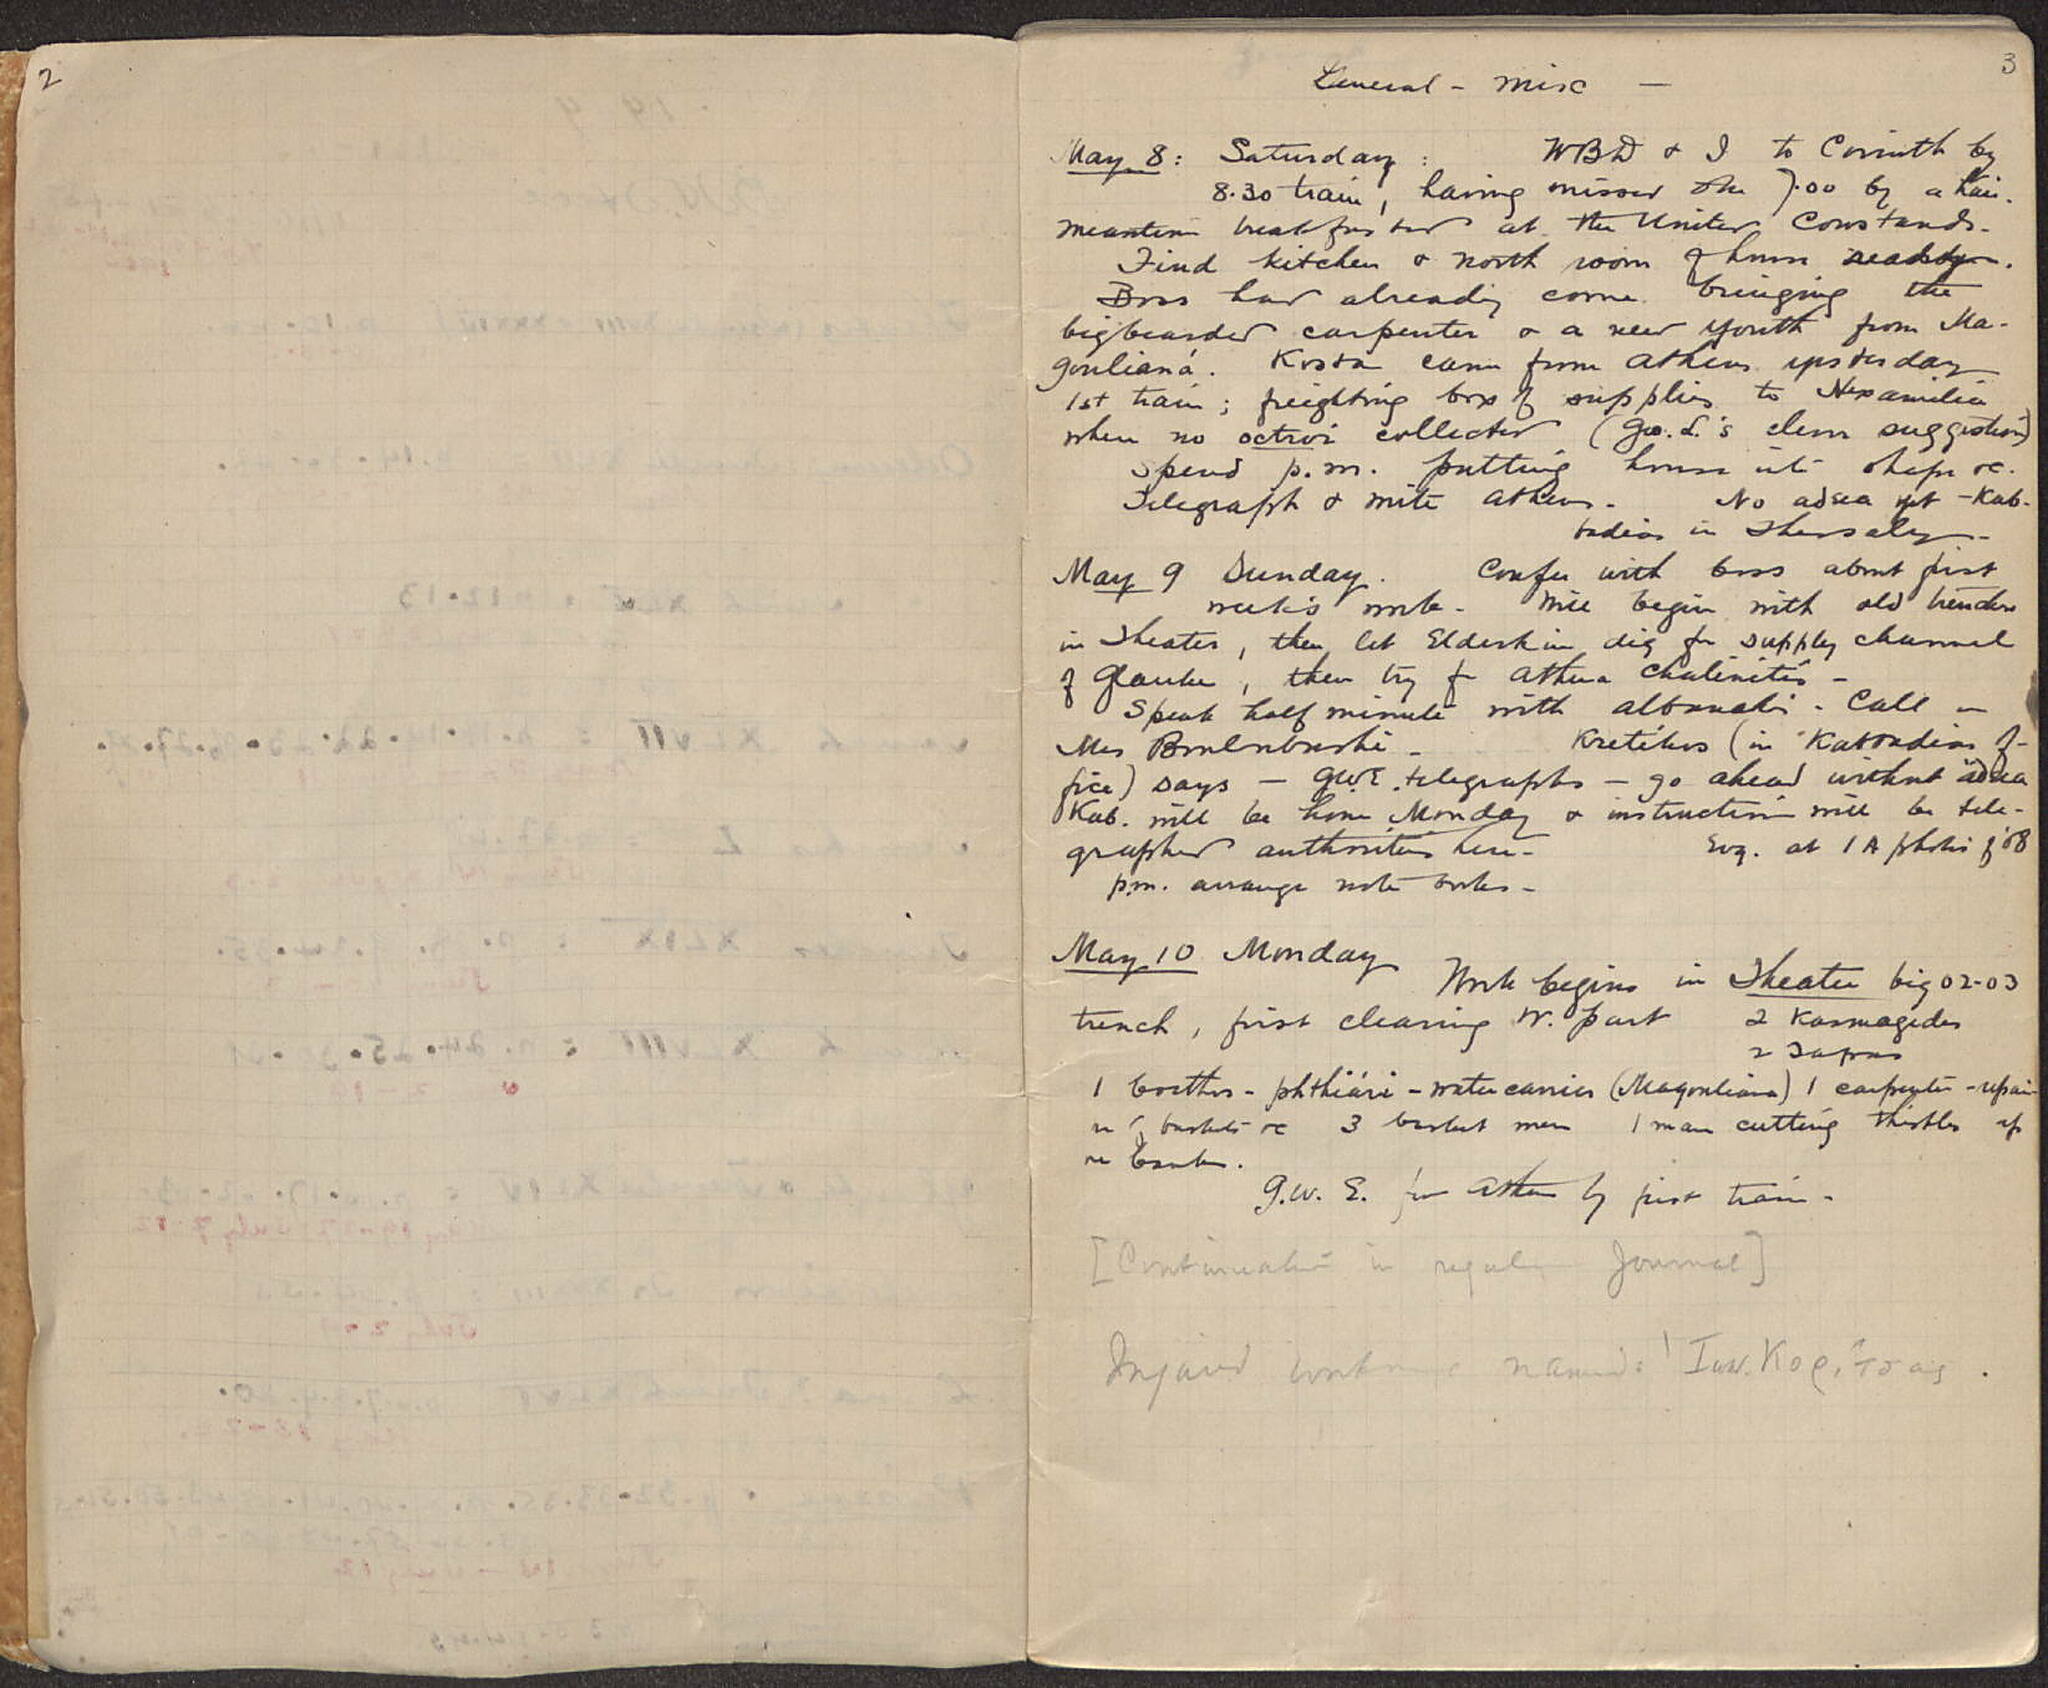 2
3
General - Misc —
May 8: Saturday: WBD & I to Corinth by
8.30 train, having missed the 7.00 by a hair.
Meantime breakfasted at the United Cowstands.
Find kitchen & north room of house ready.
Boss had already come bringing the
big bearded carpenter & a new youth from Ma-
gouliana. Kosta came from Athens yesterday
1st train; freighting box of supplies to Hexamilia
where no octroi collected (Geo. L.'s clever suggestion)
Spend p.m. putting house into shape &c.
Telegraph & write Athens. No adeia yet - Kab-
badias in Thessaly -
May 9 Sunday. Confer with boss about first
week's work. Will begin with old trenches
in Theater, then let Elderkin dig for supply channel
of Glauke, then try for Athena Chalinitis -
Speak half minute with - Call on
Mrs -  Kretikos (in Kabbadias of-
fice) says - GWE telegraphs - go ahead without adeia
Kab. will be home Monday & instruction will be tele-
graphed authorities here. at 1 A photos of '08
p.m. arrange note books -
May 10 Monday
Work begins in Theater big 02-03
trench, first clearing W. part 2 Kasmagedes
2
1 boethos - phthiari - water carrier (Magouliana) 1 carpenter - repair-
ing baskets &c 3 basket men 1 man cutting thistles up
on bank.
G.W.E. for Athens by first train -
[Continuation in regular Journal]
Injured workman named: Ἰωα.